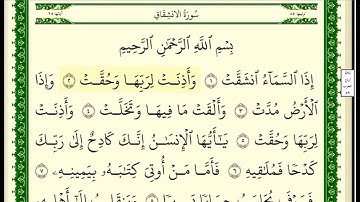 سُورَةُ الانْشِقَاقِ
بِسْمِ اللَّهِ الرَّحْمَٰنِ الرَّحِيمِ
إِذَا ٱلسَّمَآءُ ٱنشَقَّتْ ١ وَأَذِنَتْ لِرَبِّهَا وَحُقَّتْ ٢ وَإِذَا
ٱلْأَرْضُ مُدَّتْ ٣ وَأَلْقَتْ مَا فِيهَا وَتَخَلَّتْ ٤ وَأَذِنَتْ
لِرَبِّهَا وَحُقَّتْ ٥ يَٰٓأَيُّهَا ٱلْإِنسَٰنُ إِنَّكَ كَادِحٌ إِلَىٰ رَبِّكَ
كَدْحًا فَمُلَٰقِيهِ ٦ فَأَمَّا مَنْ أُوتِىَ كِتَٰبَهُۥ بِيَمِينِهِۦ ٧